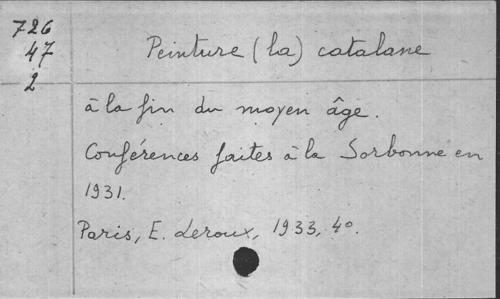 726
47
2
Peinture (la) catalane
à la fin du moyen âge.
Conférences faites à la Sorbonne en
1931.
Paris, E. Leroux, 1933, 4º.